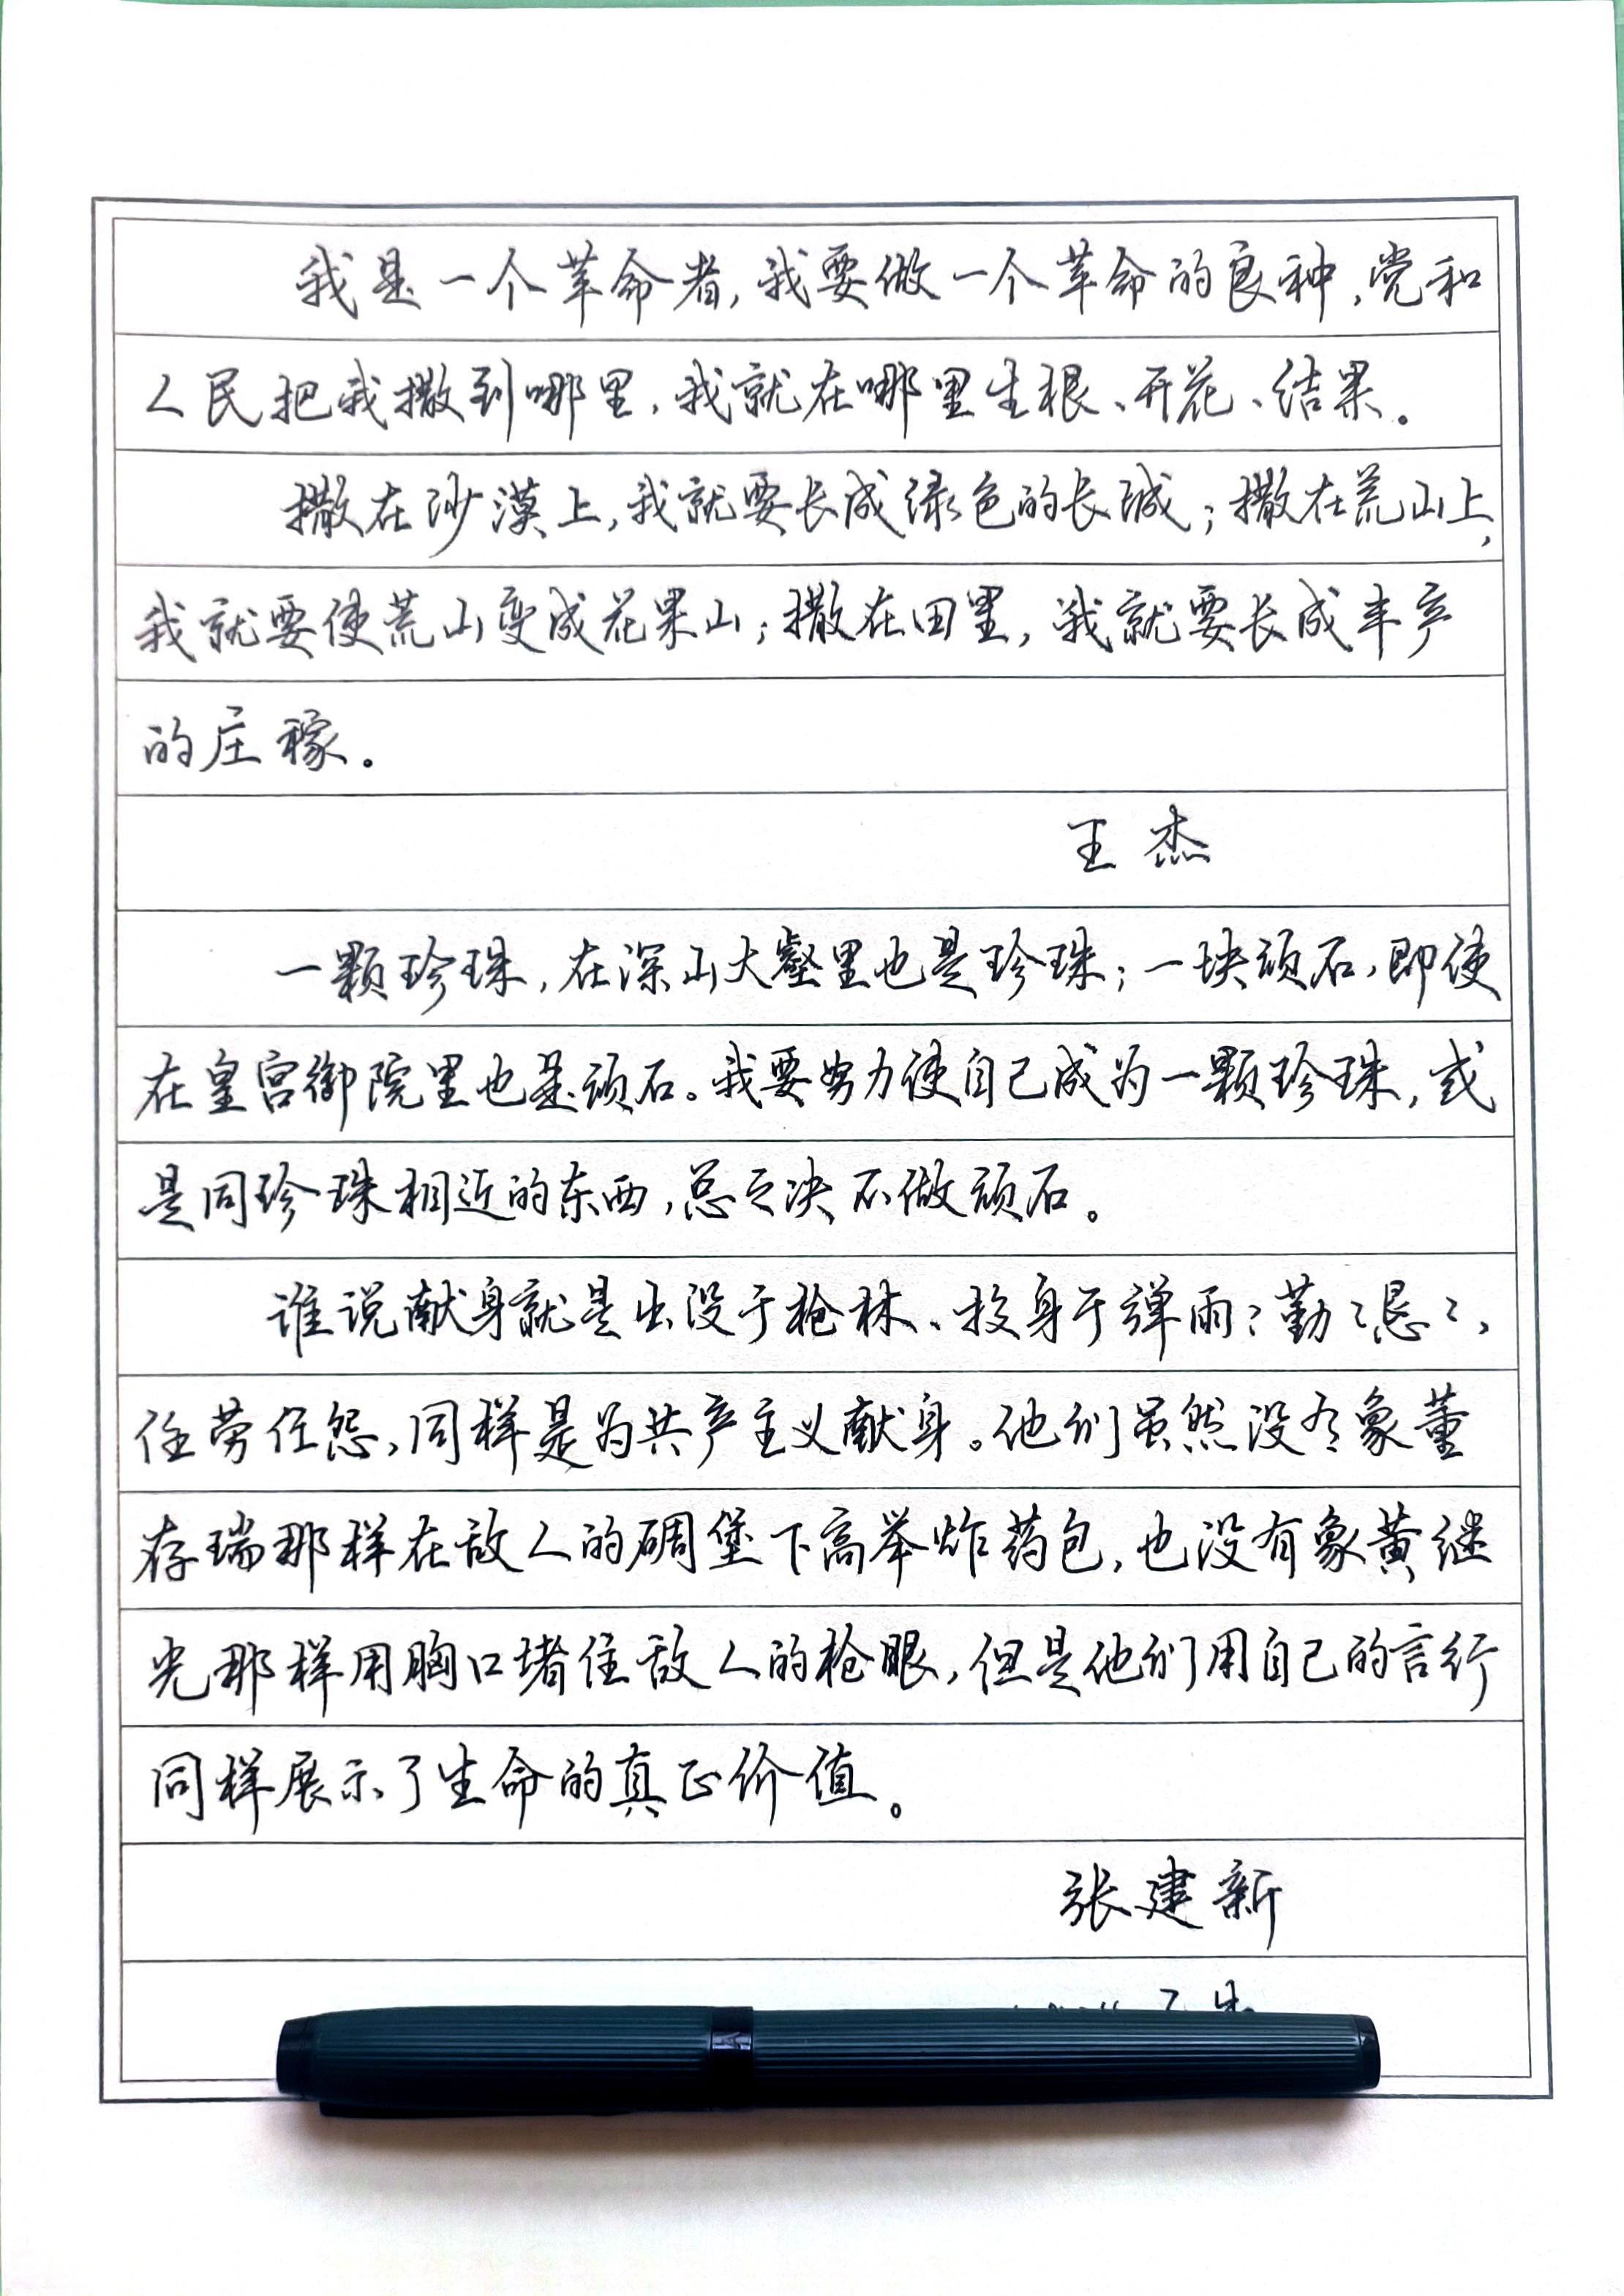 我是一个革命者,我要做一个革命的良种,党和
人民把我撒到哪里,我就在哪里生根、开花、结果。
撒在沙漠上,我就要长成绿色的长城;撒在荒山上,
我就要使荒山变成花果山;撒在田里,我就要长成丰产
的庄稼。
王杰
一颗珍珠,在深山大壑里也是珍珠;一块顽石,即使
在皇宫御院里也是顽石。我要努力使自己成为一颗珍珠,或
是同珍珠相近的东西,总之决不做顽石。
谁说献身就是出没于枪林、投身于弹雨?勤〻恳〻,
任劳任怨,同样是为共产主义献身。他们虽然没有象董
存瑞那样在敌人的碉堡下高举炸药包,也没有象黄继
光那样用胸口堵住敌人的枪眼,但是他们用自己的言行
同样展示了生命的真正价值。
张建新